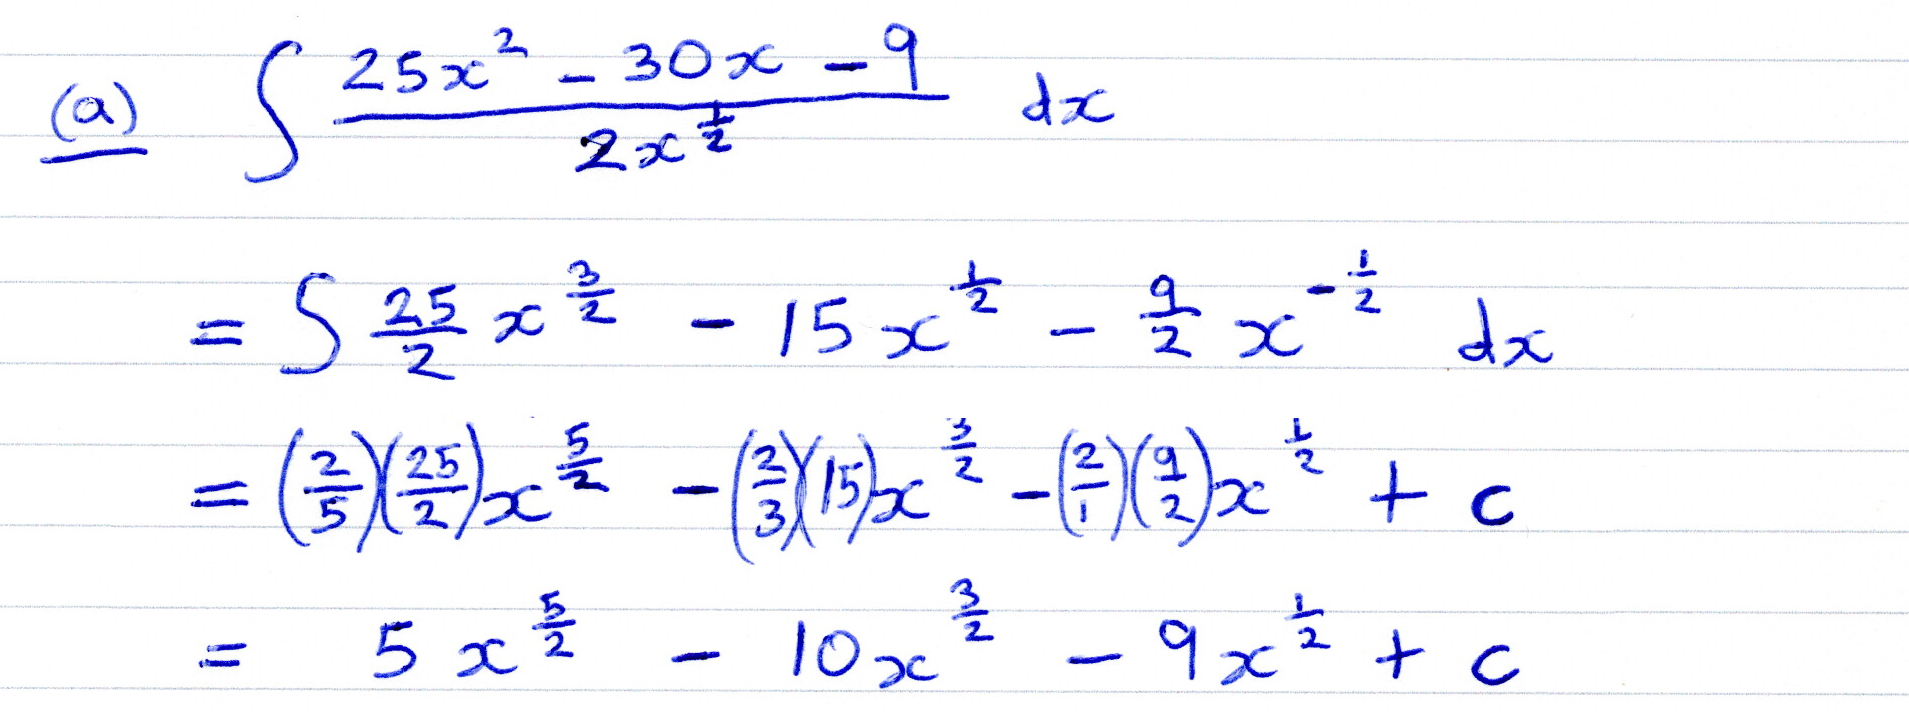 (a) ∫ (25x² - 30x - 9)/(2x^(1/2)) dx
= ∫ 25/2 x^(3/2) - 15x^(1/2) - 9/2 x^(-1/2) dx
= (2/5)(25/2)x^(5/2) - (2/3)(15)x^(3/2) - (2/1)(9/2)x^(1/2) + c
= 5x^(5/2) - 10x^(3/2) - 9x^(1/2) + c